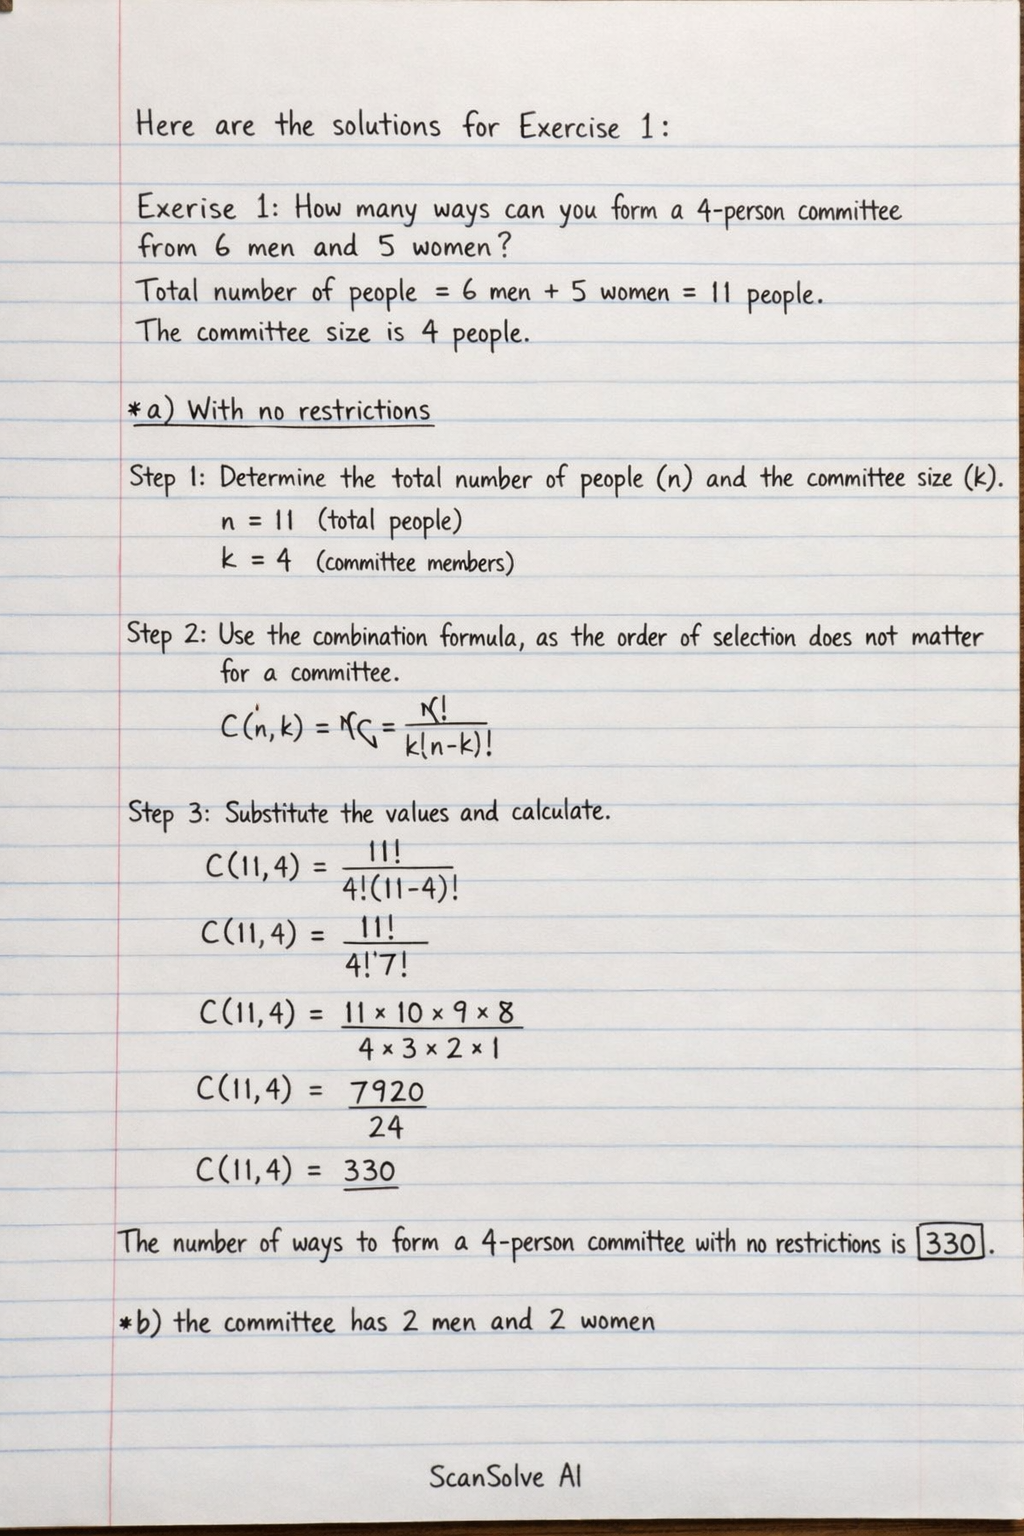 Here are the solutions for Exercise 1:
Exerise 1: How many ways can you form a 4-person committee
from 6 men and 5 women?
Total number of people = 6 men + 5 women = 11 people.
The committee size is 4 people.
*a) With no restrictions
Step 1: Determine the total number of people (n) and the committee size (k).
n = 11 (total people)
k = 4 (committee members)
Step 2: Use the combination formula, as the order of selection does not matter
for a committee.
C(n,k) =
k!(n-k)!
Step 3: Substitute the values and calculate.
C(11,4) = 11!
4!(11-4)!
C(11,4) = 11!
4!'7!
C(11,4) = 11 × 10 × 9 × 8
4 × 3 × 2 × 1
C(11,4) = 7920
24
C(11,4) = 330
The number of ways to form a 4-person committee with no restrictions is 330.
*b) the committee has 2 men and 2 women
ScanSolve AI